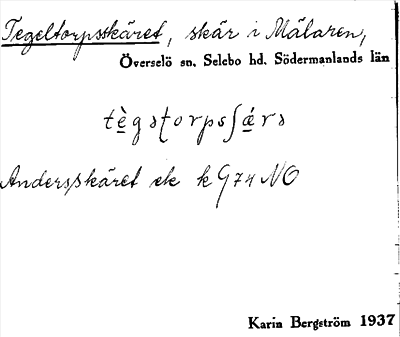 Tegeltorpsskäret, skär i Mälaren,
Överselö sn. Selebo hd. Södermanlands län
tè̠gəʈorpsʃǽ̠rə
Andersskäret ek k G74 NO
Karin Bergström 1937